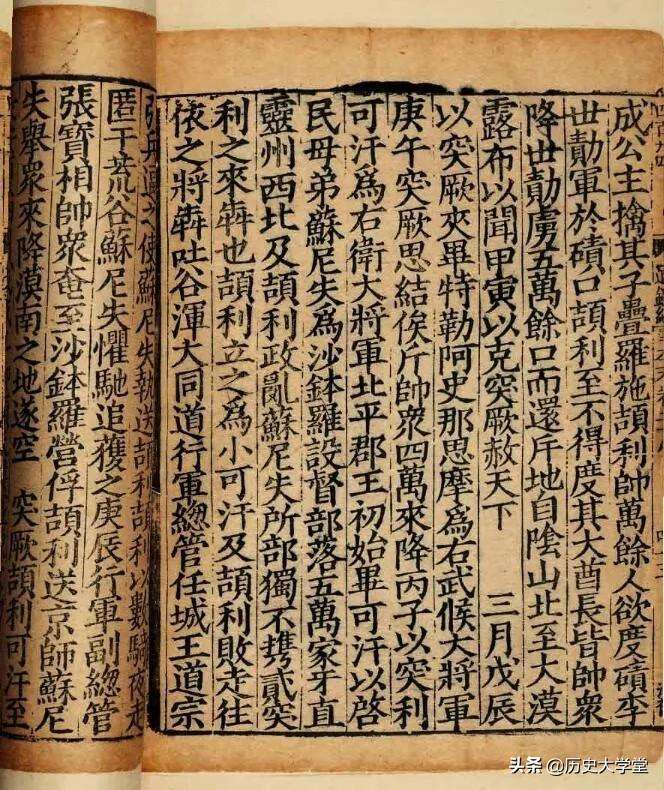 成公主擒其子疊羅施頡利帥萬餘人欲度磧李
世勣軍於磧口頡利至不得度其大酋長皆帥衆
降世勣虜五萬餘口而還斥地自陰山北至大漠
露布以聞甲寅以克突厥赦天下 三月戊辰
以突厥夾畢特勒阿史那思摩爲右武候大將軍
庚午突厥思結俟斤帥衆四萬來降丙子以突利
可汗爲右衛大將軍北平郡王初始畢可汗以啓
民母弟蘇尼失爲沙鉢羅設督部落五萬家牙直
靈州西北及頡利政亂蘇尼失所部獨不攜貳突
利之來奔也頡利立之爲小可汗及頡利敗走往
依之將奔吐谷渾大同道行軍總管任城王道宗
使蘇尼失執送頡利頡利以數騎夜走
匿于荒谷蘇尼失懼馳追獲之庚辰行軍副總管
張寶相帥衆奄至沙鉢羅營俘頡利送京師蘇尼
失舉衆來降漠南之地遂空 突厥頡利可汗至
头条 @历史大学堂